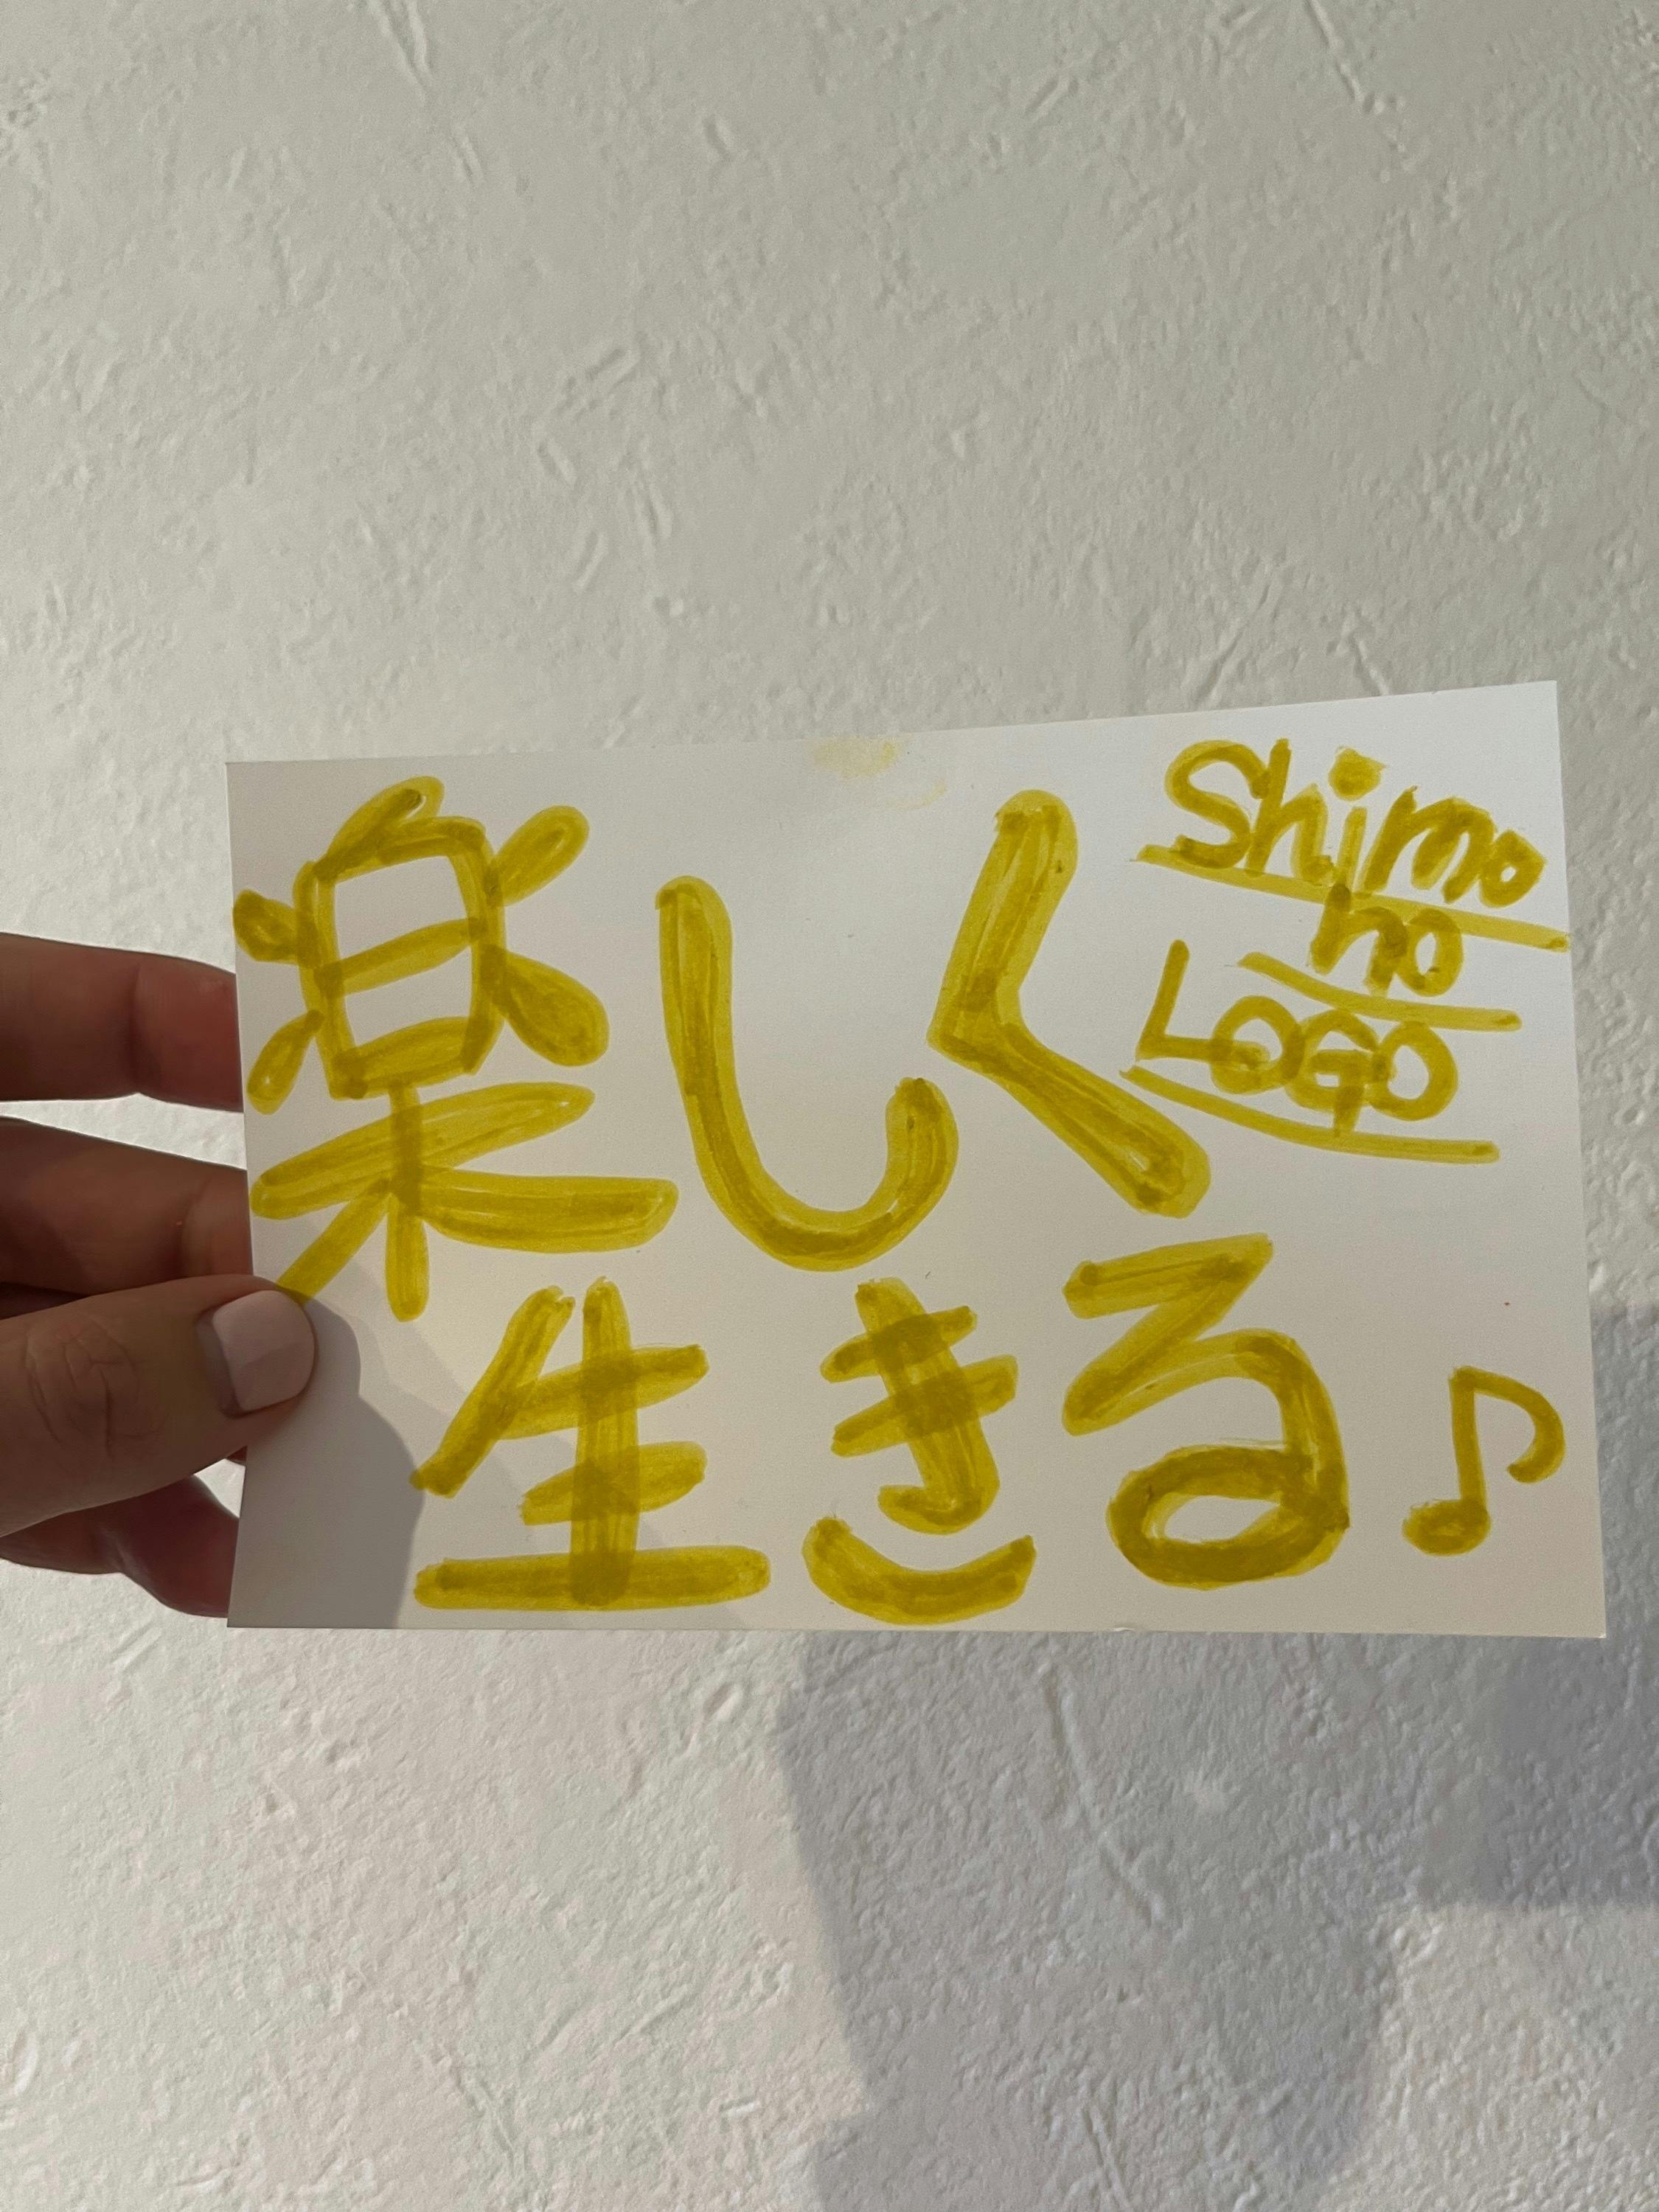 楽しく
Shimo
no
LOGO
生きる♪